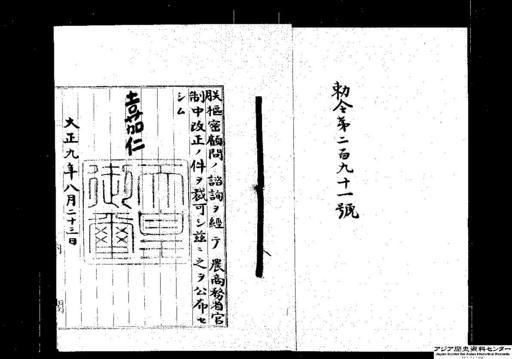 勅令第二百九十一號
朕樞密顧問ノ諮詢ヲ經テ農商務省官
制中改正ノ件ヲ裁可シ茲ニ之ヲ公布セ
シム
嘉仁
天皇
御璽
大正九年八月二十三日
アジア歴史資料センター
Japan Center for Asian Historical Records